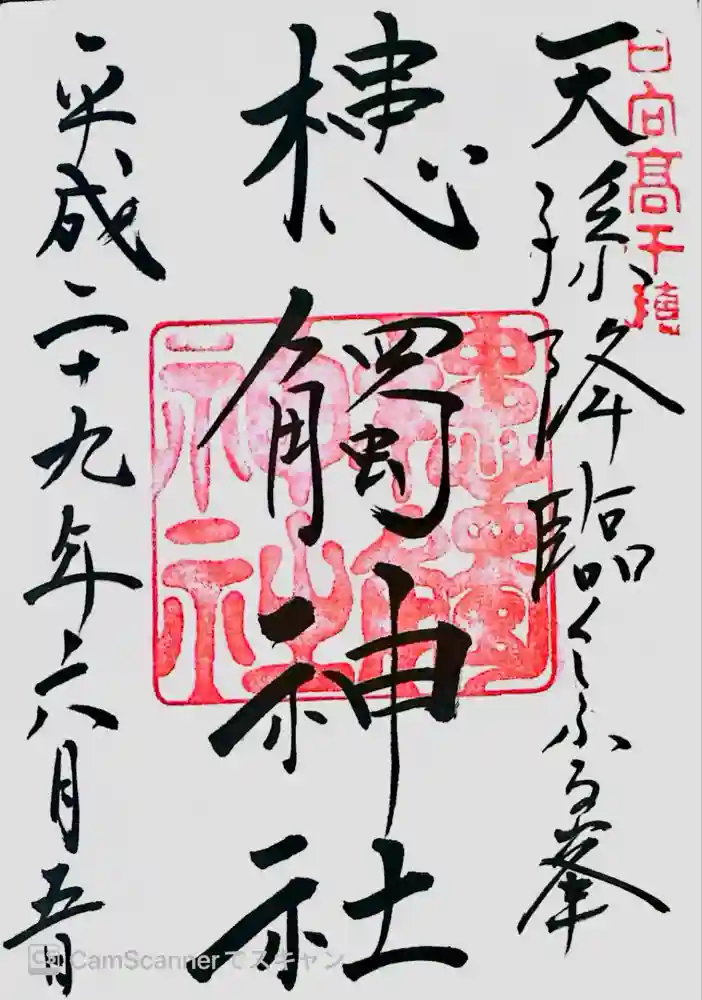 日向高千穂
天孫降臨くしふる峯
槵觸神社
槵觸神社
平成二十九年六月五日
CamScannerでスキャン